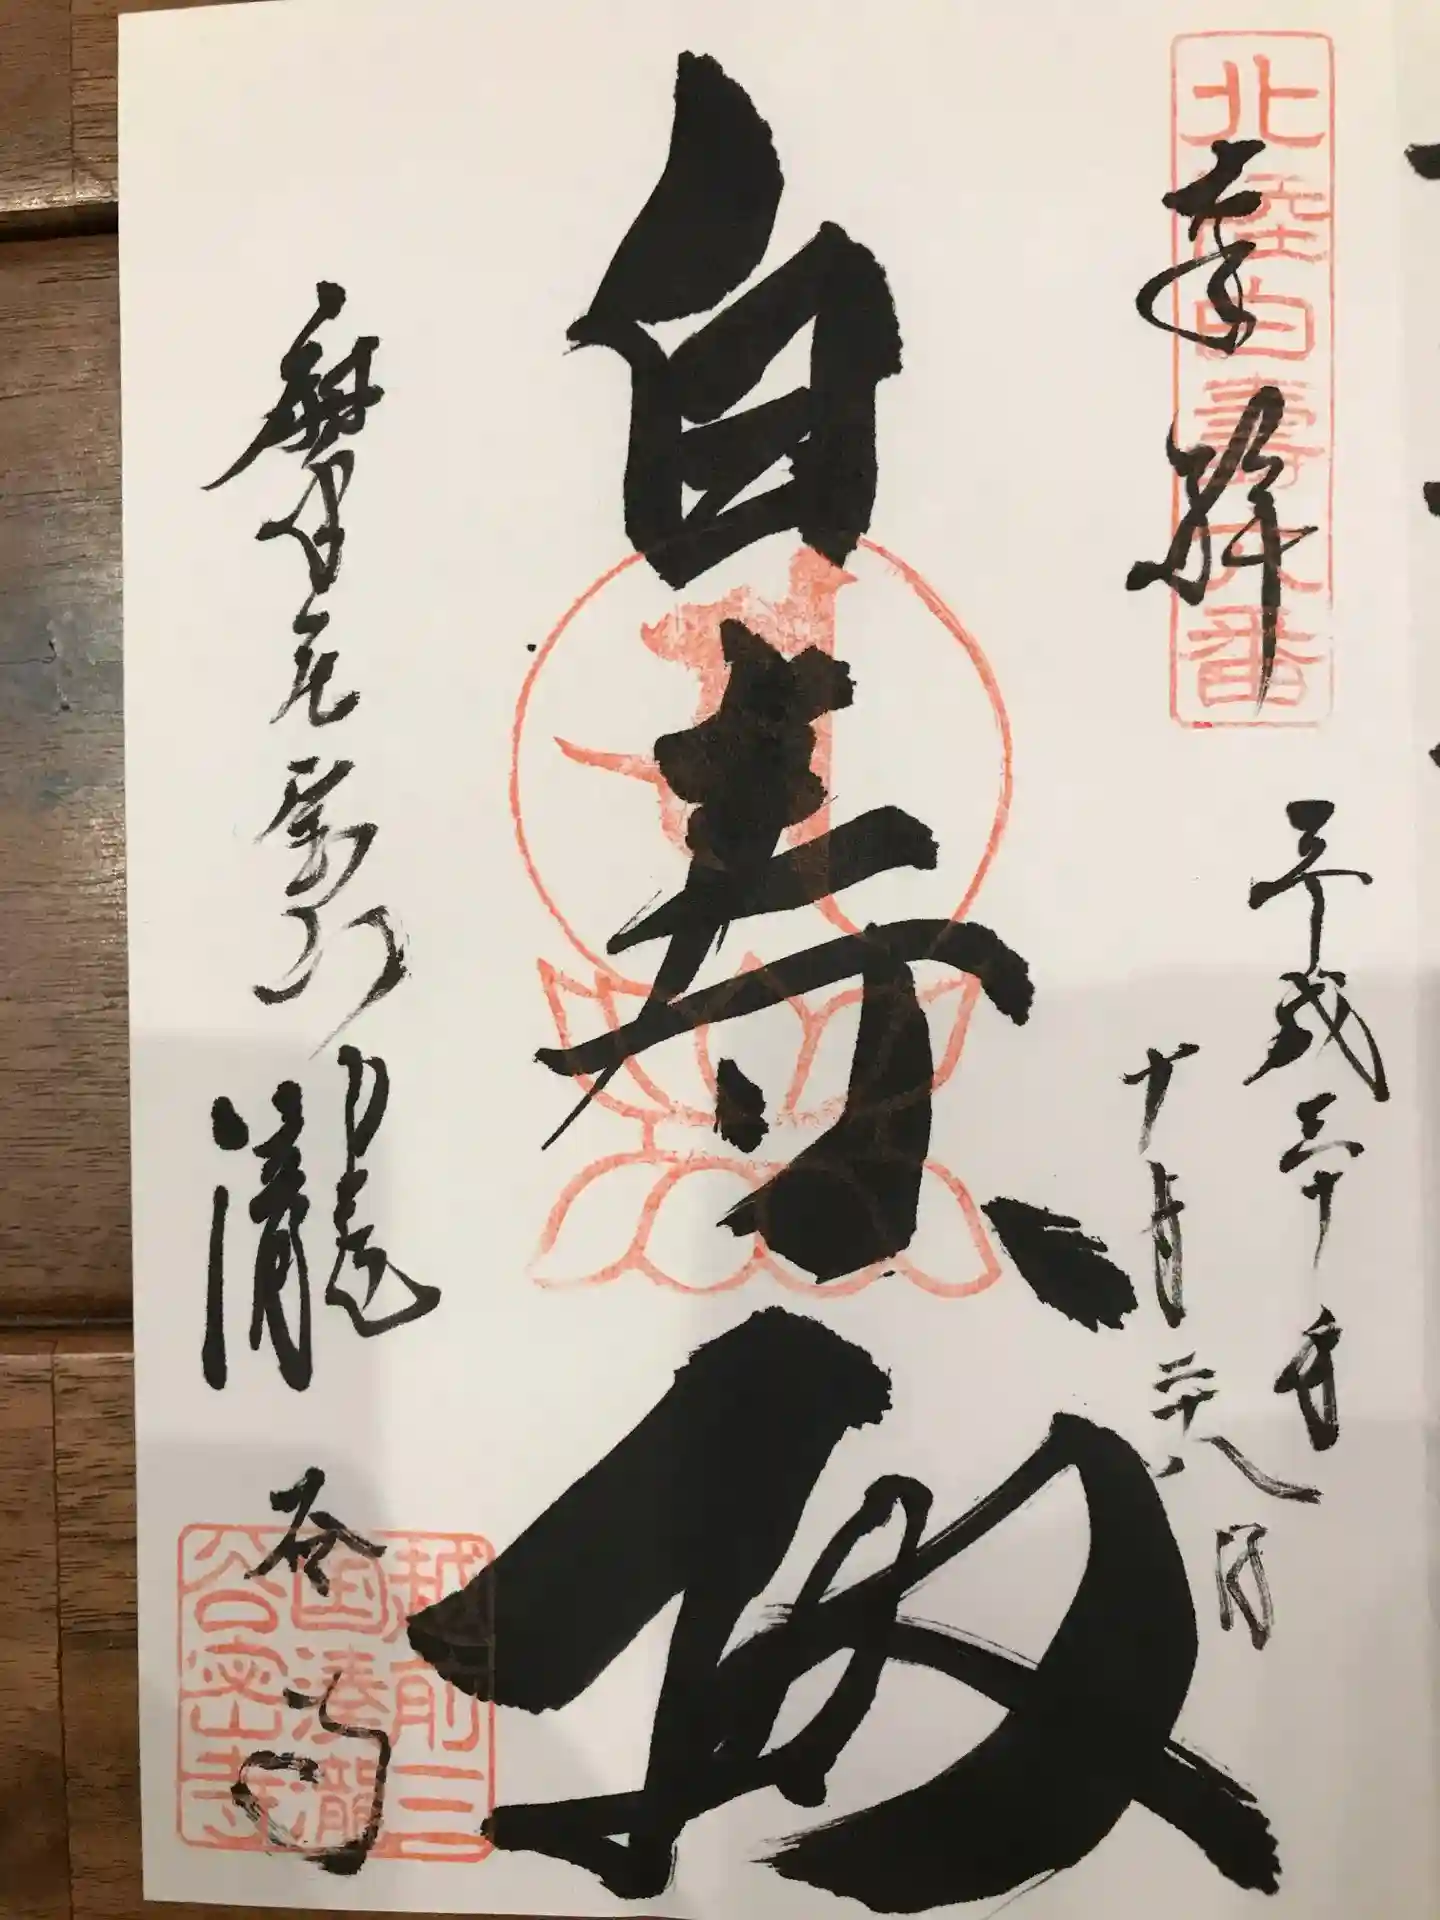 奉拝
北陸白壽
番
平成三十年
十月二十八日
白寿殿
摩尼宝山
瀧谷寺
越前三
国湊瀧
谷密寺